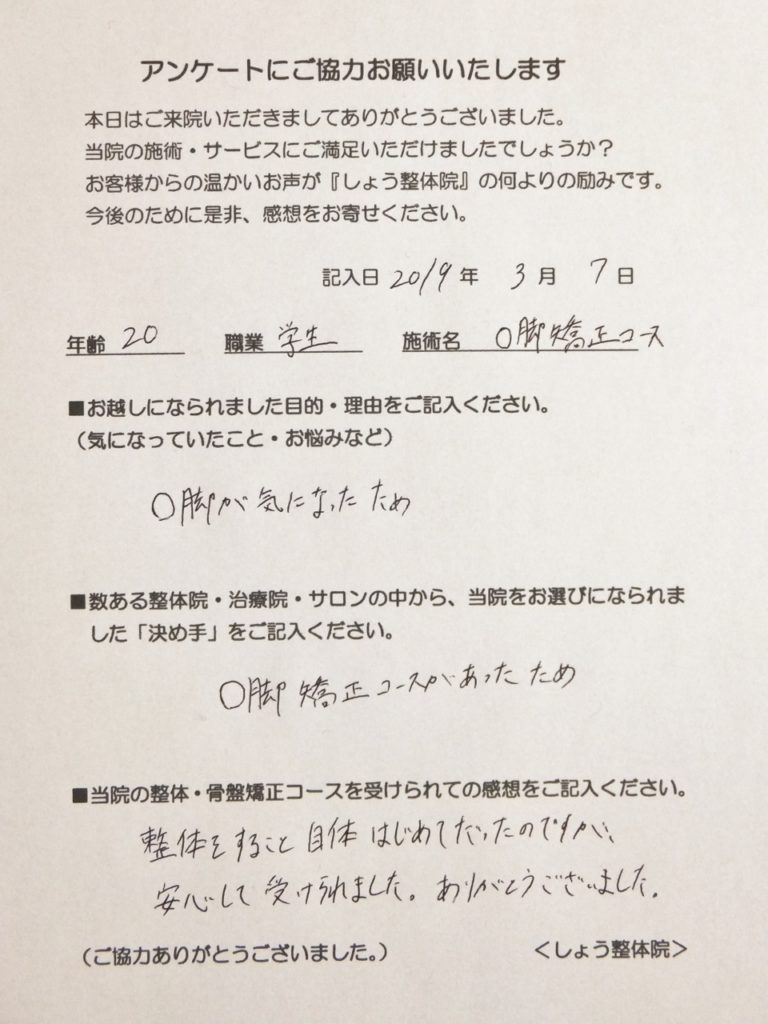 アンケートにご協力お願いいたします
本日はご来院いただきましてありがとうございました。
当院の施術・サービスにご満足いただけましたでしょうか？
お客様からの温かいお声が『しょう整体院』の何よりの励みです。
今後のために是非、感想をお寄せください。
記入日 2019 年 3 月 7 日
年齢 20 職業 学生 施術名 O脚矯正コース
■お越しになられました目的・理由をご記入ください。
（気になっていたこと・お悩みなど）
O脚が気になったため
■数ある整体院・治療院・サロンの中から、当院をお選びになられま
した「決め手」をご記入ください。
O脚矯正コースがあったため
■当院の整体・骨盤矯正コースを受けられての感想をご記入ください。
整体をすること自体はじめてだったのですが、
安心して受けられました。ありがとうございました。
（ご協力ありがとうございました。）　＜しょう整体院＞